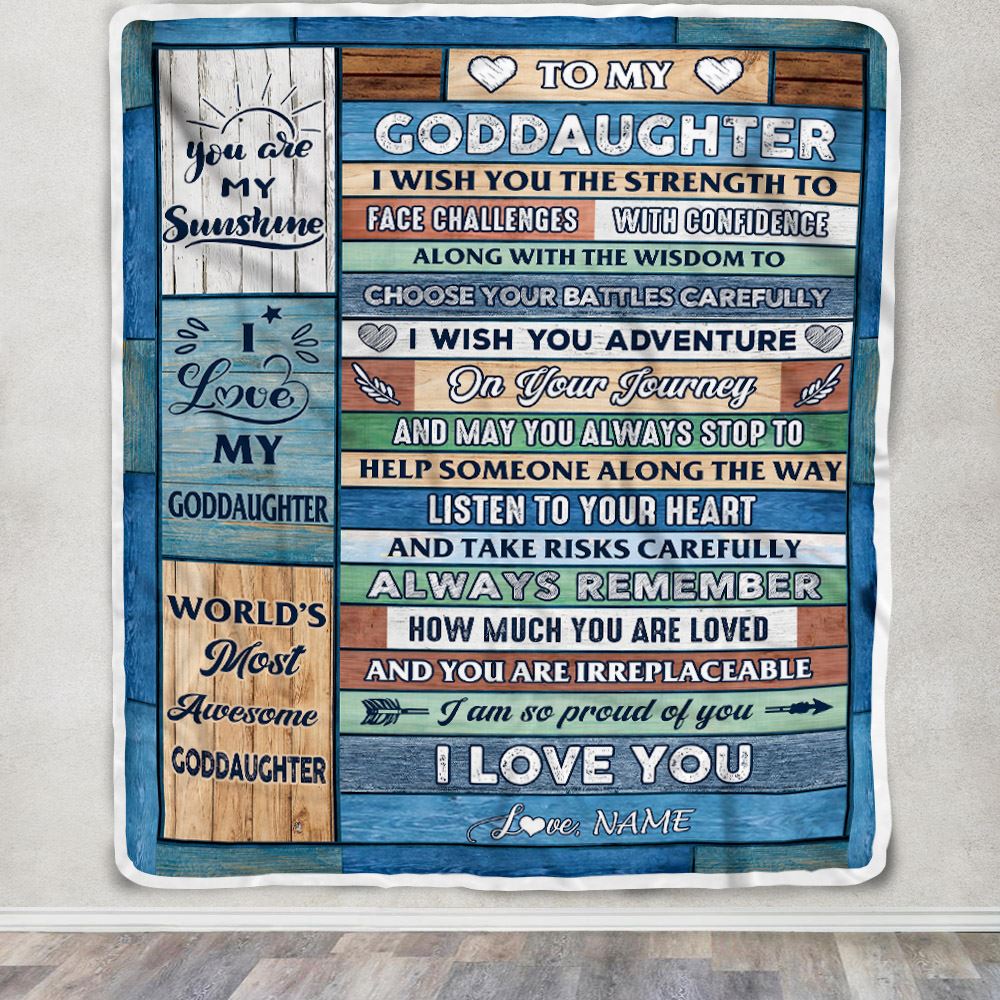 you are
MY
Sunshine
I
Love
MY
GODDAUGHTER
WORLD'S
Most
Awesome
GODDAUGHTER
TO MY
GODDAUGHTER
I WISH YOU THE STRENGTH TO
FACE CHALLENGES WITH CONFIDENCE
ALONG WITH THE WISDOM TO
CHOOSE YOUR BATTLES CAREFULLY
I WISH YOU ADVENTURE
On Your Journey
AND MAY YOU ALWAYS STOP TO
HELP SOMEONE ALONG THE WAY
LISTEN TO YOUR HEART
AND TAKE RISKS CAREFULLY
ALWAYS REMEMBER
HOW MUCH YOU ARE LOVED
AND YOU ARE IRREPLACEABLE
I am so proud of you
I LOVE YOU
Love, NAME